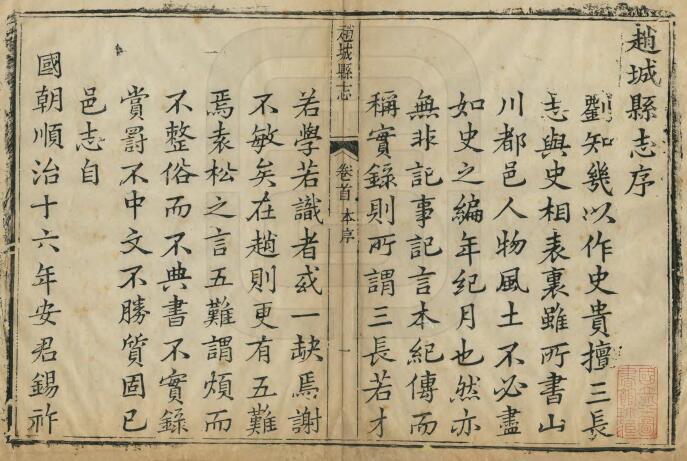 趙城縣志序
劉知幾以作史貴擅三長
志與史相表裏雖所書山
川都邑人物風土不必盡
如史之編年紀月也然亦
無非記事記言本紀傳而
稱實錄則所謂三長若才
趙城縣志
卷首 本序
一
若學若識者或一缺焉謝
不敏矣在趙則更有五難
焉袁松之言五難謂煩而
不整俗而不典書不實錄
賞罰不中文不勝質固已
邑志自
國朝順治十六年安君錫祚